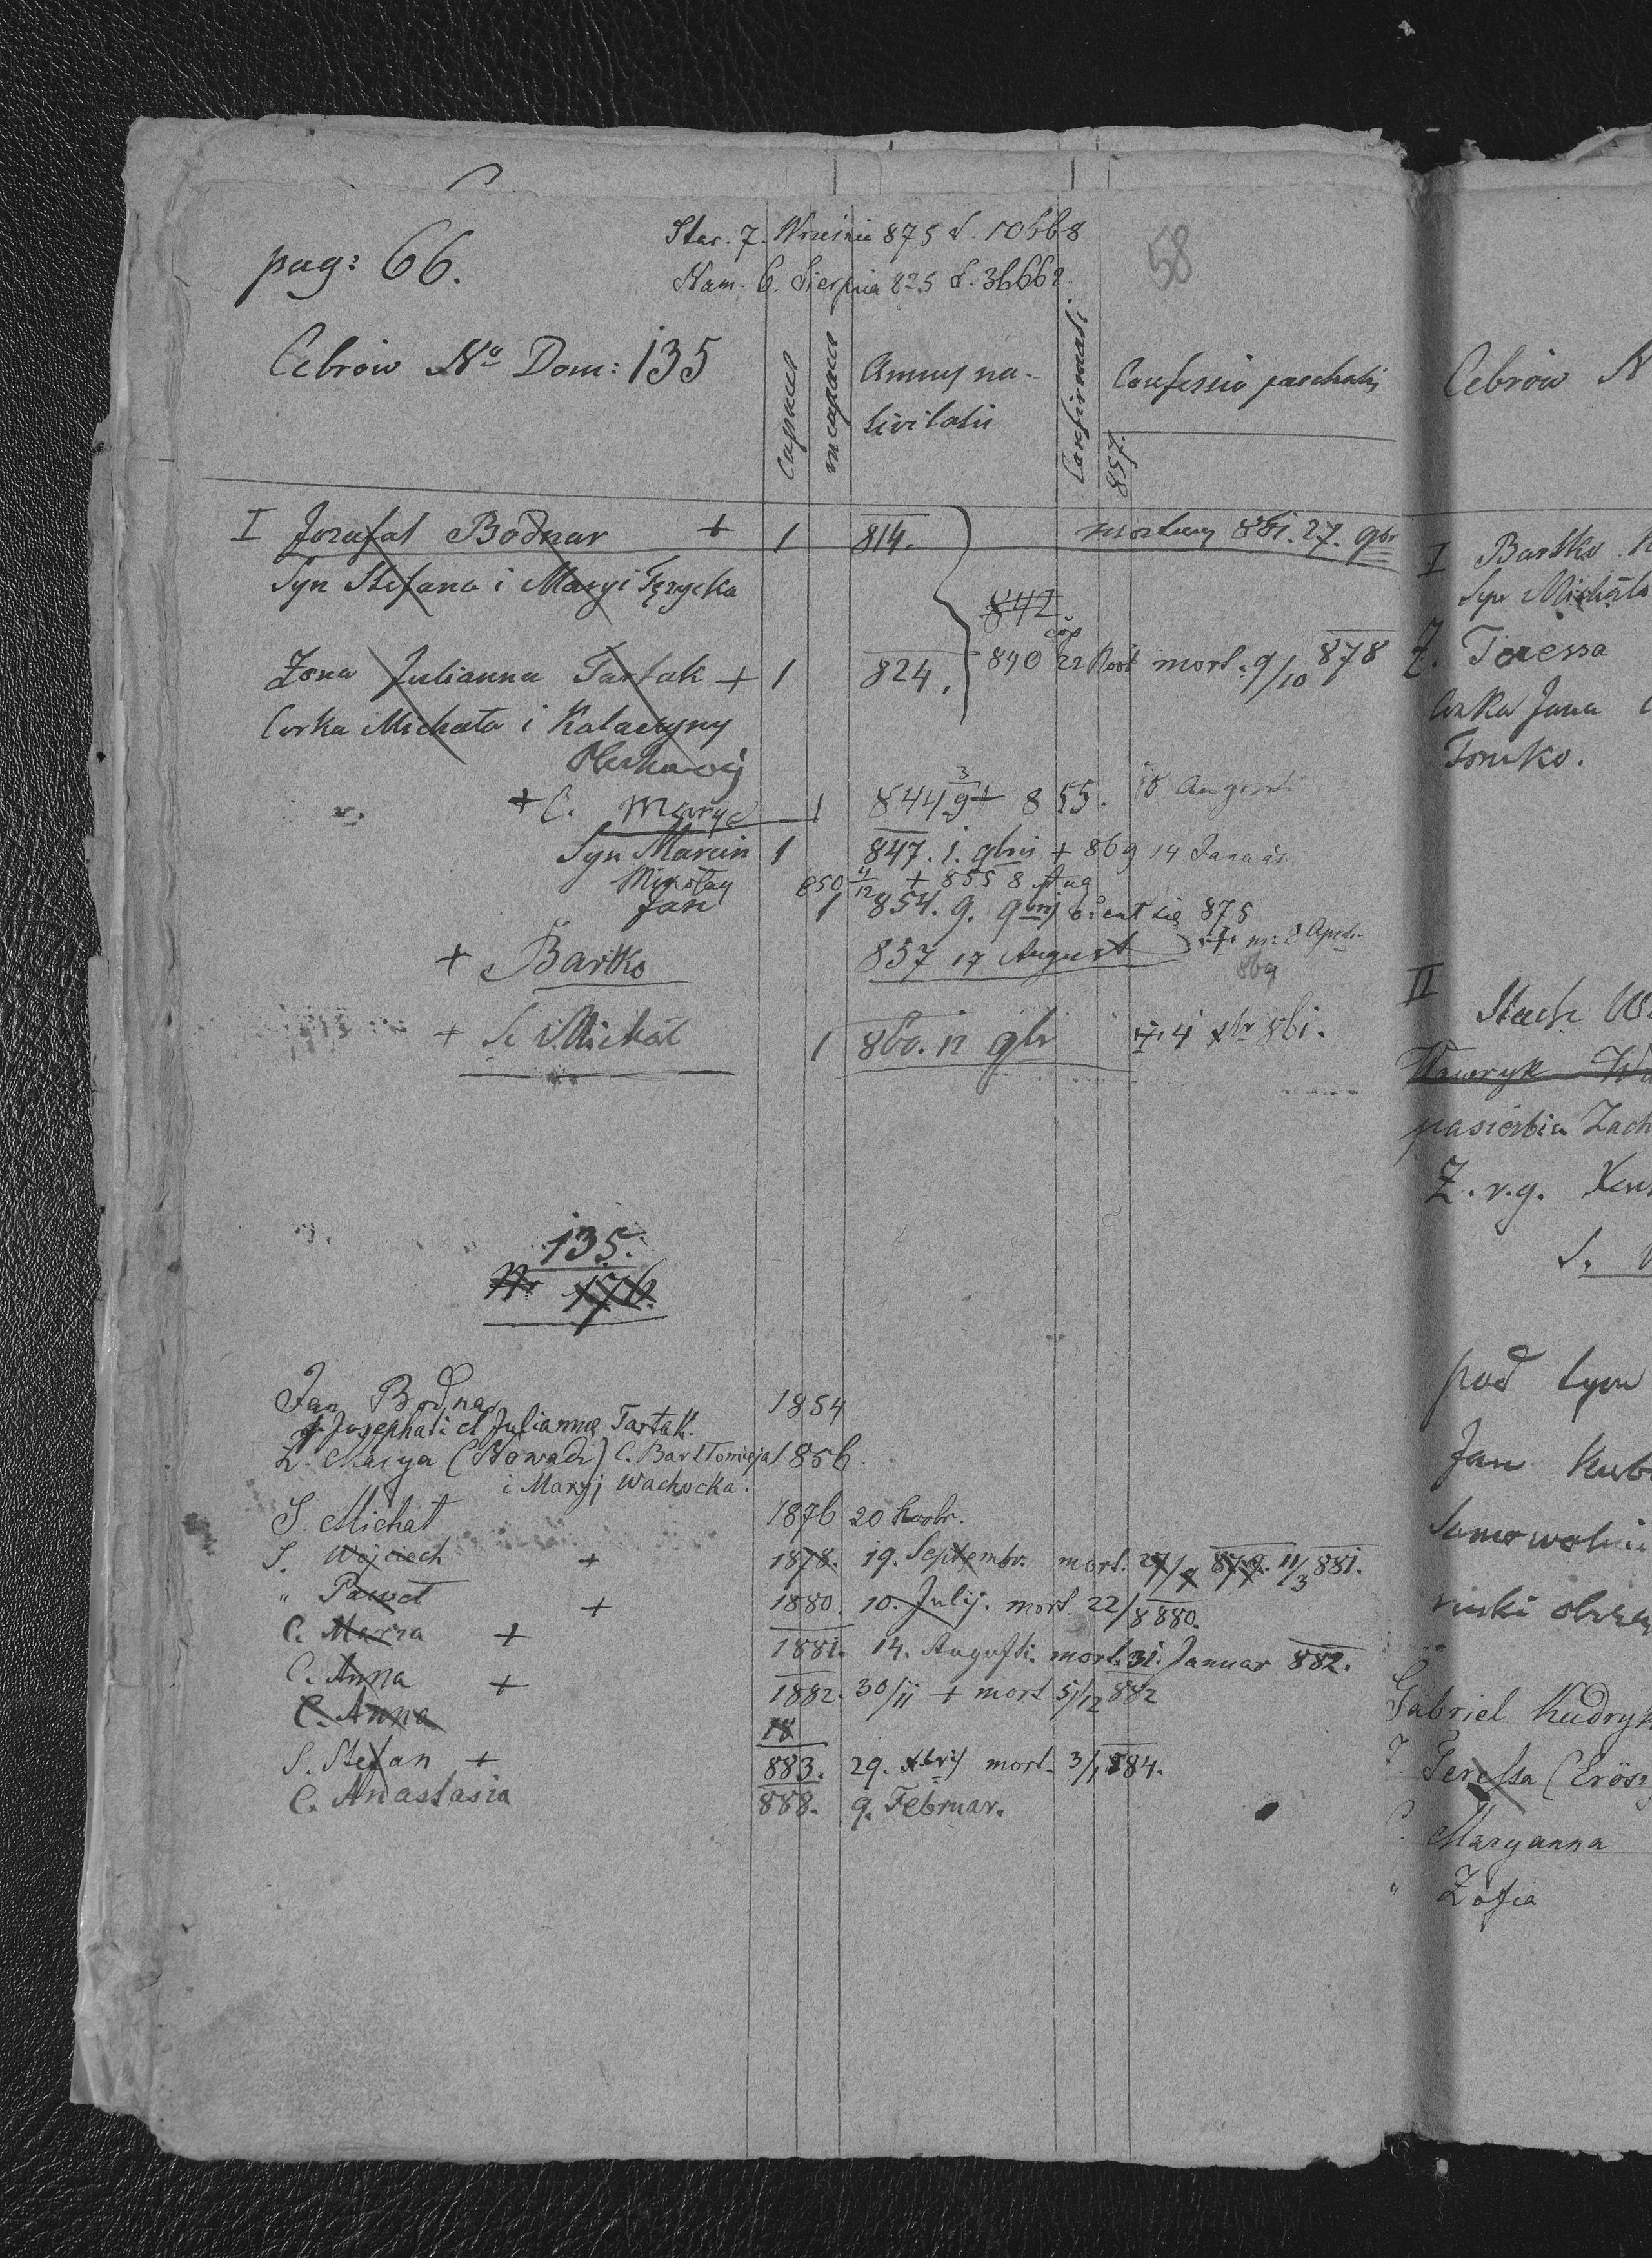 Star. 7. Wrzesnia 875 L. 10668
pag: 66.
Nam. 6. Sierpnia 825 L. 36662
58
Cebrów No Dom: 135
Capaces
incapaces
Annus na-
tivitatis
Confirmati
Confessio paschalis
857.
I Jozafat Bodnar + 1 814. mortuus 861. 27. 9br
Syn Stefana i Maryi
842
cop
Zona Julianna Tartak + 1 824. 840 22 mort. 9/10 878
Corka Michała i Katarzyny
+ C. Marya 1 844 3/9 + 855. 18 Augusti
Syn Marcin 1 847. 1. 9bris + 869 14
Mikołay 850 4/12 + 855 8 Aug
Jan 1 854. 9. 9brij 875
+ Bartko 857 17 August + 8 April
869
+ S. Michał 1 860. 12 9br + 4 xbr 861.
135.
N. 176.
Jan Bodnar 1854
f. Josephati et Julianna Tartak.
Ż. Marya (Nowach) C. Bartłomieja 1856.
i Maryj Wachocka.
S. Michał 1876 20
S. Wojciech + 1878. 19. Septembr. mort. 27/9 879. 11/3 881.
" Paweł + 1880. 10. Julij. mort. 22/8 880.
C. Marya + 1881. 14. Augusti. mort. 31. Januar 882.
C. Anna + 1882. 30/11 + mort 5/12 882
C. Anna 18
S. Stefan + 883. 29. xbrij mort. 3/1 884.
C. Anastasia 888. 9. Februar.
Cebrów N
I Bartko
Syn Michała
Ż. Teressa
Corka Jana
Tomko.
II Stach
Wawryk
pasierbica Zach
Ż. v.g.
S.
pod tym
Jan Kub
Samowolni
Gabriel Kudryk
Teressa
Maryanna
" Zofia